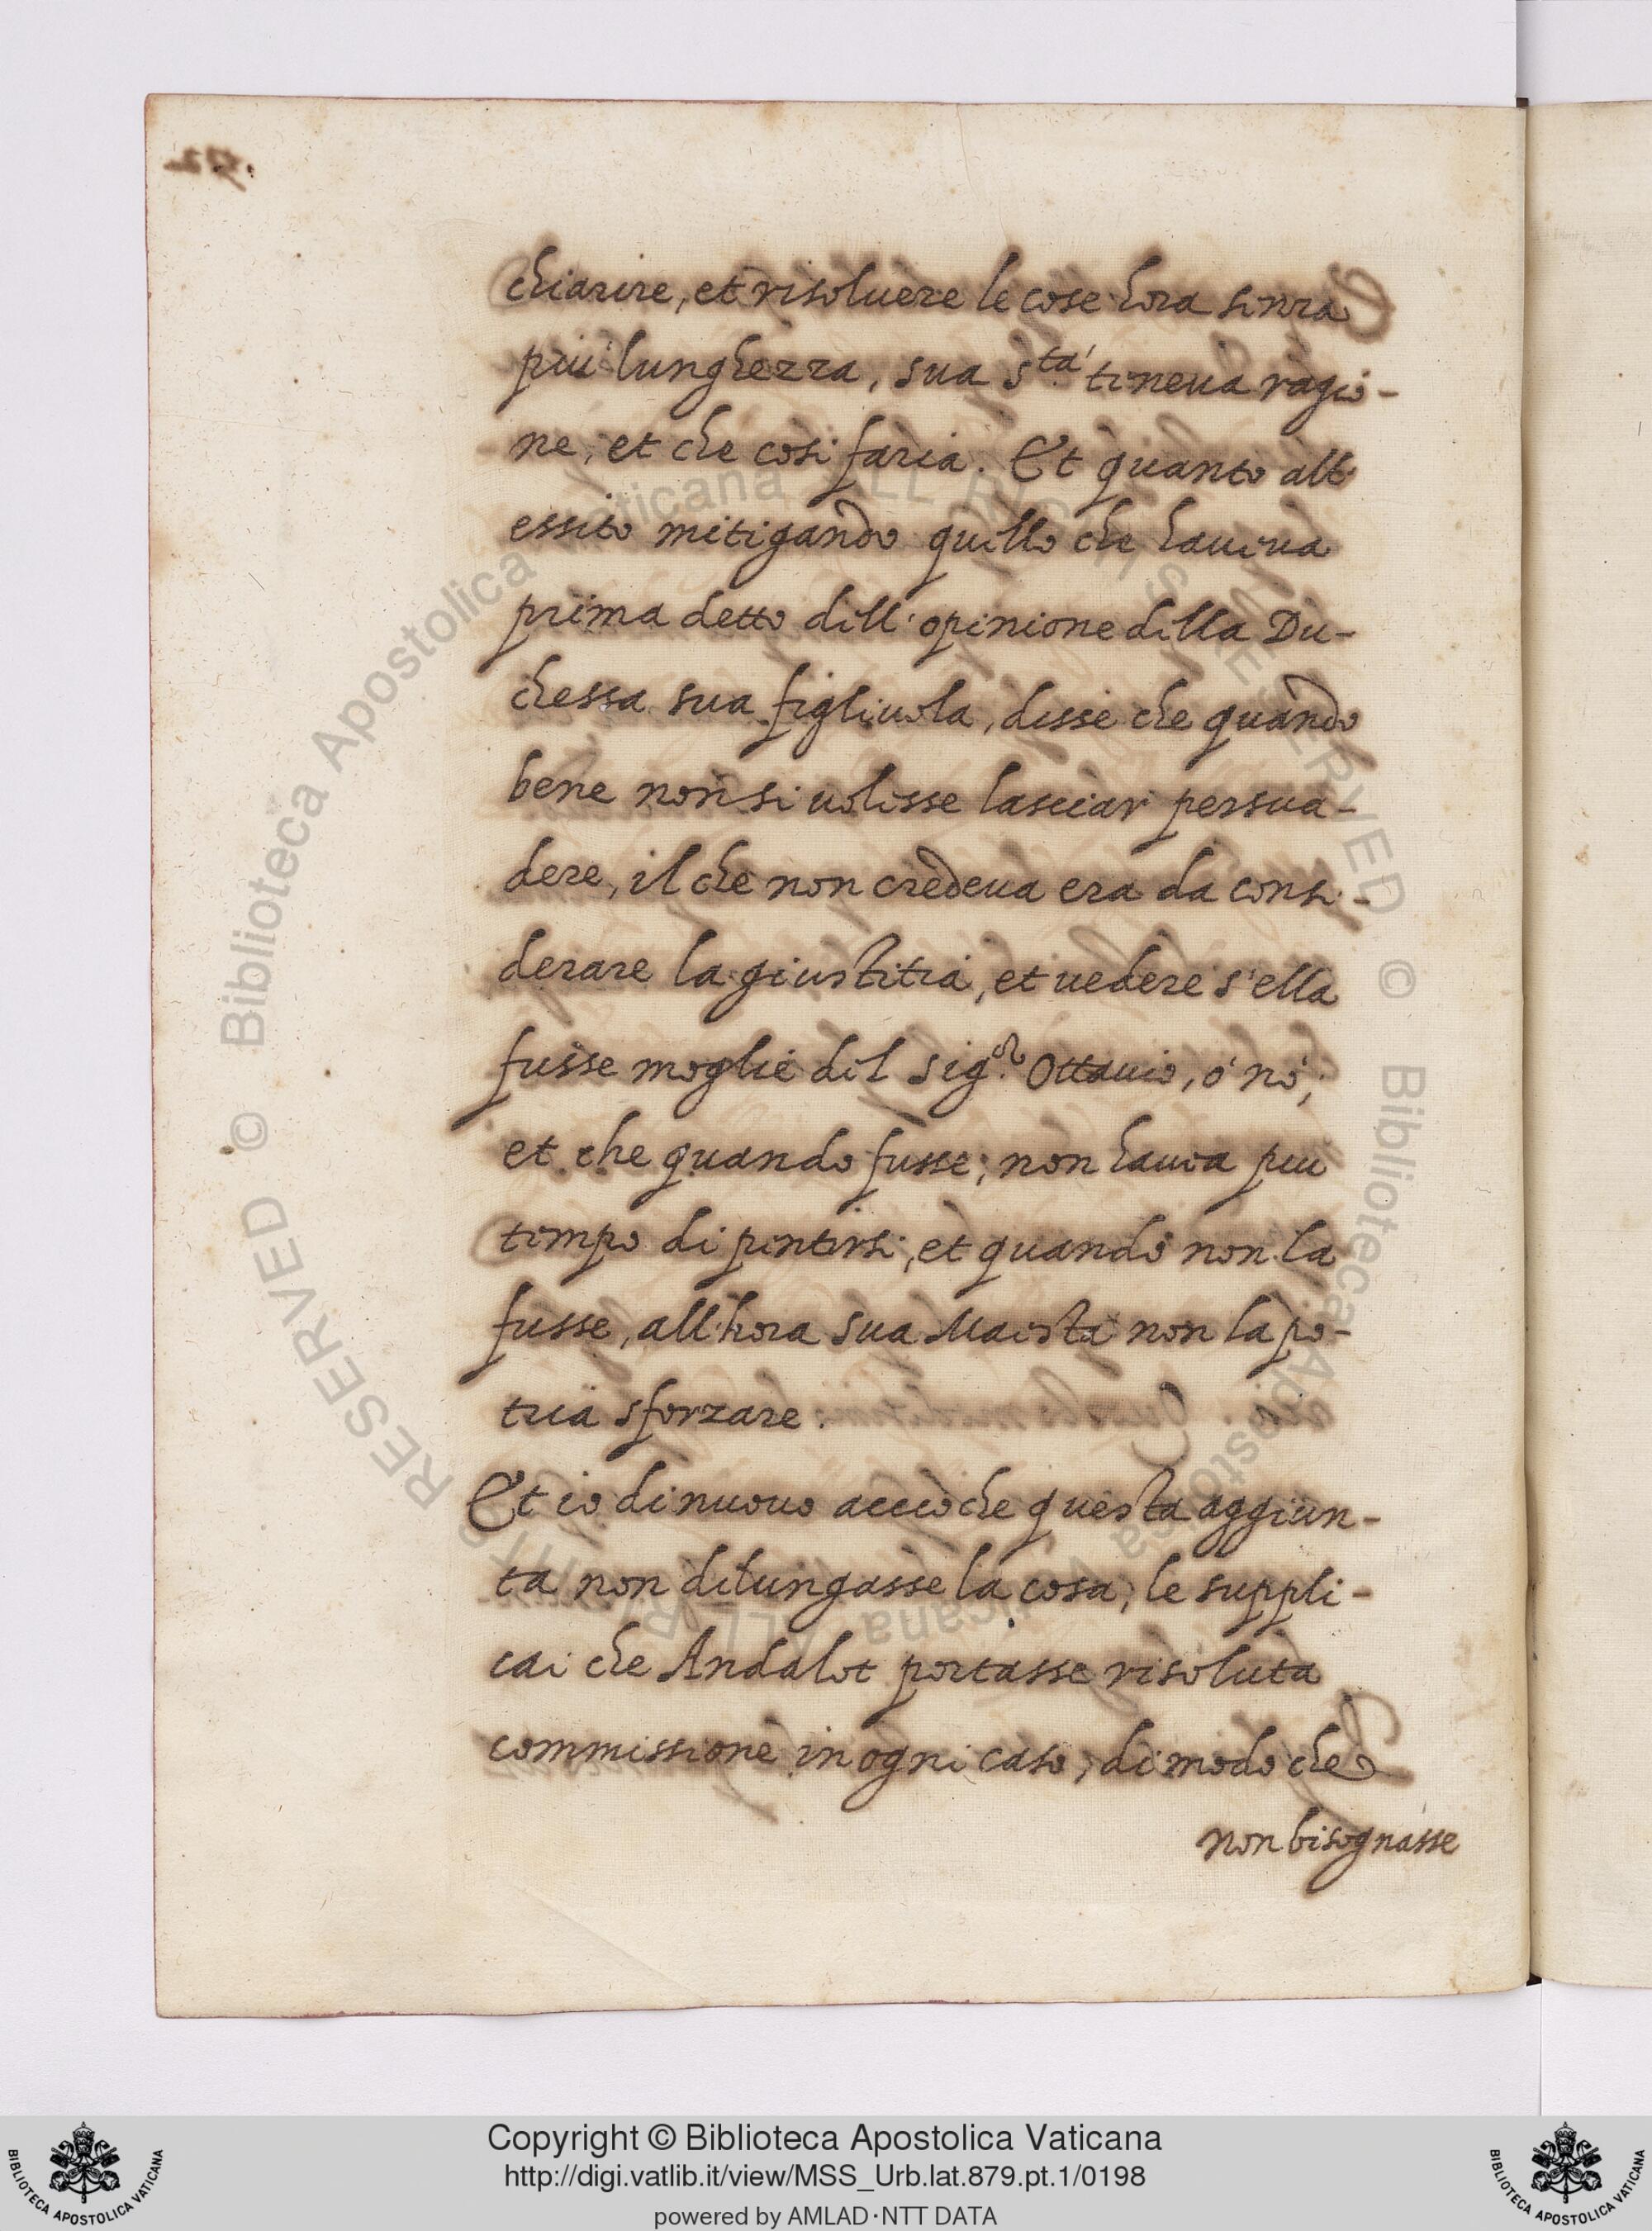 chiarire, et risoluere le cose hora senza
piu lunghezza, sua S.ta' teneua ragio-
ne, et che cosi faria. Et quanto all'
essito mitigando quello che haueua
prima detto dell'opinione della Du-
chessa sua figliuola, disse che quando
bene non si uolesse lasciar persua-
dere, il che non credeua era da consi-
derare la giustitia, et uedere s'ella
fusse moglie del Sig.or Ottauio, ò nò,
et che quando fusse, non hauea piu
tempo di pentirsi, et quando non la
fusse, all'hora sua Maestà non la po-
tria sforzare.
Et io di nuouo acciò che questa aggiun-
ta non dilungasse la cosa, le suppli-
cai che Andalot portasse risoluta
commissione in ogni caso, di modo che
non bisognasse
© Biblioteca Apostolica Vaticana ALL RIGHTS RESERVED © Biblioteca Apostolica Vaticana ALL RIGHTS RESERVED
Copyright © Biblioteca Apostolica Vaticana
http://digi.vatlib.it/view/MSS_Urb.lat.879.pt.1/0198
powered by AMLAD·NTT DATA
BIBLIOTECA APOSTOLICA VATICANA
BIBLIOTECA APOSTOLICA VATICANA